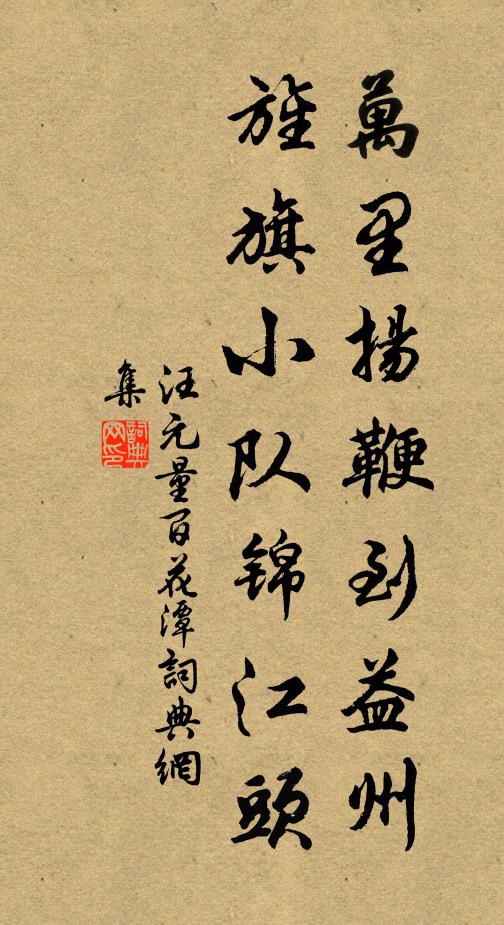 萬里揚鞭到益州
旌旗小队锦江頭
汪元量百花潭詞典網
集
詞典
网印